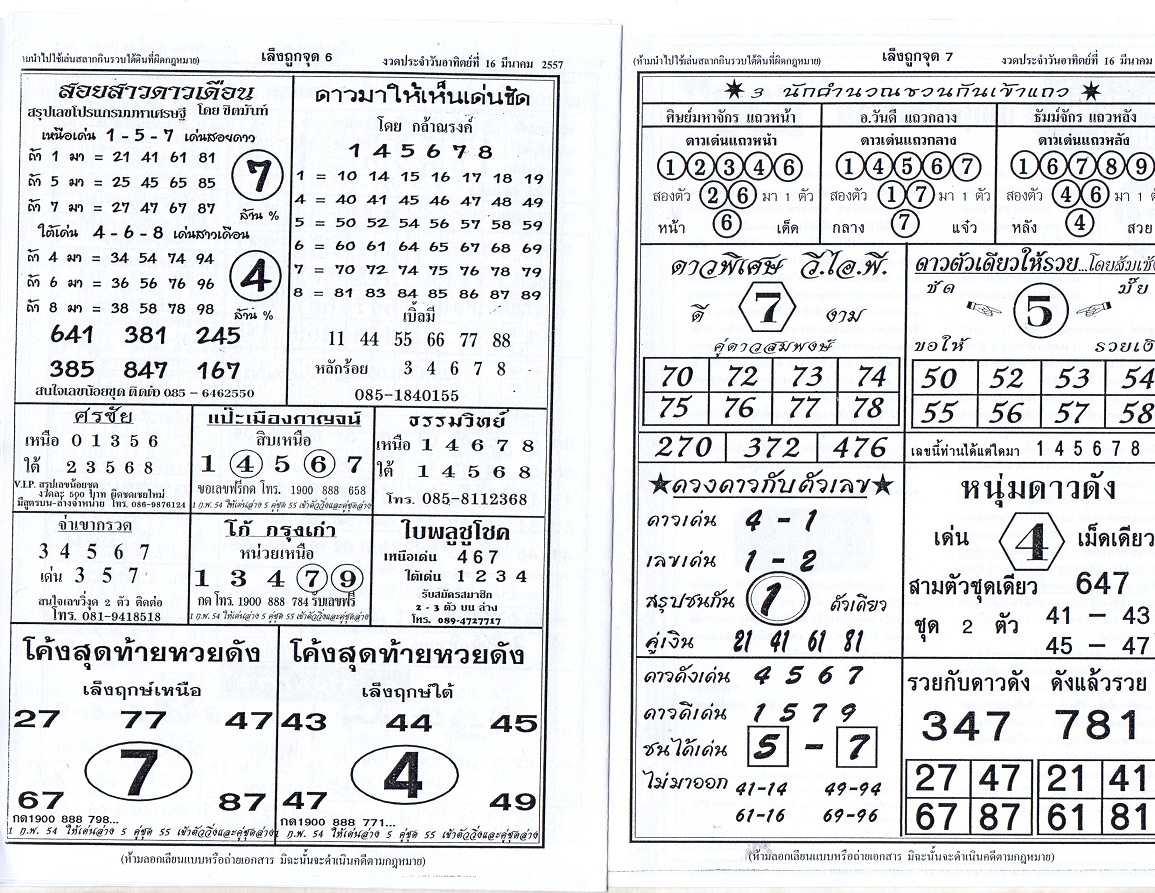 ามนำไปใช้เล่นสลากกินรวบใต้ดินที่ผิดกฎหมาย)
เล็งถูกจุด 6
งวดประจำวันอาทิตย์ที่ 16 มีนาคม 2557
สอยสาวดาวเดือน
สรุปเลขโปรแกรมมหาเศรษฐี โดย ชิตมันท์
เหนือเด่น 1 - 5 - 7 เด่นสอยดาว
ถ้า 1 มา = 21 41 61 81
ถ้า 5 มา = 25 45 65 85
7
ถ้า 7 มา = 27 47 67 87
ล้าน %
ใต้เด่น 4 - 6 - 8 เด่นสาวเดือน
ถ้า 4 มา = 34 54 74 94
ถ้า 6 มา = 36 56 76 96
4
ถ้า 8 มา = 38 58 78 98
ล้าน %
641 381 245
385 847 167
สนใจเลขน้อยชุด ติดต่อ 085 – 6462550
ดาวมาให้เห็นเด่นชัด
โดย กล้าณรงค์
1 4 5 6 7 8
1 = 10 14 15 16 17 18 19
4 = 40 41 45 46 47 48 49
5 = 50 52 54 56 57 58 59
6 = 60 61 64 65 67 68 69
7 = 70 72 74 75 76 78 79
8 = 81 83 84 85 86 87 89
เบิ้ลมี
11 44 55 66 77 88
หลักร้อย 3 4 6 7 8
085-1840155
ศรชัย
เหนือ 0 1 3 5 6
ใต้ 2 3 5 6 8
V.I.P. สรุปเลขน้อยชุด
งวดละ 500 บาท ผิดชดเชยใหม่
มีสูตรบน-ล่างจำหน่าย โทร. 086-9876124
แป๊ะเมืองกาญจน์
สิบเหนือ
1 4 5 6 7
ขอเลขฟรีกด โทร. 1900 888 658
1 ก.พ. 54 ให้เด่นล่าง 5 คู่ชุด 55 เข้าตัววิ่งและคู่ชุดล่าง
ธรรมวิทย์
เหนือ 1 4 6 7 8
ใต้ 1 4 5 6 8
โทร. 085-8112368
จำเขากรวด
3 4 5 6 7
เด่น 3 5 7
สนใจเลขวิ่งชุด 2 ตัว ติดต่อ
โทร. 081-9418518
โก้ กรุงเก่า
หน่วยเหนือ
1 3 4 7 9
กด โทร. 1900 888 784 รับเลขฟรี
1 ก.พ. 54 ให้เด่นล่าง 5 คู่ชุด 55 เข้าตัววิ่งและคู่ชุดล่าง
ใบพลูชูโชค
เหนือเด่น 4 6 7
ใต้เด่น 1 2 3 4
รับสมัครสมาชิก
2 - 3 ตัว บน ล่าง
โทร. 089-4727717
โค้งสุดท้ายหวยดัง
เล็งฤกษ์เหนือ
27 77 47
7
67 87
กด1900 888 798...
1 ก.พ. 54 ให้เด่นล่าง 5 คู่ชุด 55 เข้าตัววิ่งและคู่ชุดล่าง
โค้งสุดท้ายหวยดัง
เล็งฤกษ์ใต้
43 44 45
4
47 49
กด1900 888 771...
1 ก.พ. 54 ให้เด่นล่าง 5 คู่ชุด 55 เข้าตัววิ่งและคู่ชุดล่าง
(ห้ามลอกเลียนแบบหรือถ่ายเอกสาร มิฉะนั้นจะดำเนินคดีตามกฎหมาย)
(ห้ามนำไปใช้เล่นสลากกินรวบใต้ดินที่ผิดกฎหมาย)
เล็งถูกจุด 7
งวดประจำวันอาทิตย์ที่ 16 มีนาคม
3 นักคำนวณชวนกันเข้าแถว
ศิษย์มหาจักร แถวหน้า
ดาวเด่นแถวหน้า
1 2 3 4 6
สองตัว 2 6 มา 1 ตัว
หน้า 6 เด็ด
อ.วันดี แถวกลาง
ดาวเด่นแถวกลาง
1 4 5 6 7
สองตัว 1 7 มา 1 ตัว
กลาง 7 แจ๋ว
ธัมม์จักร แถวหลัง
ดาวเด่นแถวหลัง
1 6 7 8 9
สองตัว 4 6 มา 1 ตัว
หลัง 4 สวย
ดาวพิเศษ วี.ไอ.พี.
ดี 7 งาม
คู่ดาวสมพงษ์
70 72 73 74
75 76 77 78
270 372 476
ดาวตัวเดียวให้รวย...โดยส้มเช้ง
ชัด 5 มั๊ย
ขอให้ รวยเงิ
50 52 53 54
55 56 57 58
เลขนี้ท่านได้แต่ใดมา 1 4 5 6 7 8
ดวงดาวกับตัวเลข
ดาวเด่น 4 - 1
เลขเด่น 1 - 2
สรุปชนกัน 1 ตัวเดียว
คู่เงิน 21 41 61 81
หนุ่มดาวดัง
เด่น 4 เม็ดเดียว
สามตัวชุดเดียว 647
ชุด 2 ตัว 41 – 43
45 – 47
ดาวดังเด่น 4 5 6 7
ดาวดีเด่น 1 5 7 9
ชนได้เด่น 5 - 7
ไม่มาออก 41-14 49-94
61-16 69-96
รวยกับดาวดัง ดังแล้วรวย
347 781
27 47 21 41
67 87 61 81
(ห้ามลอกเลียนแบบหรือถ่ายเอกสาร มิฉะนั้นจะดำเนินคดีตามกฎหมาย)